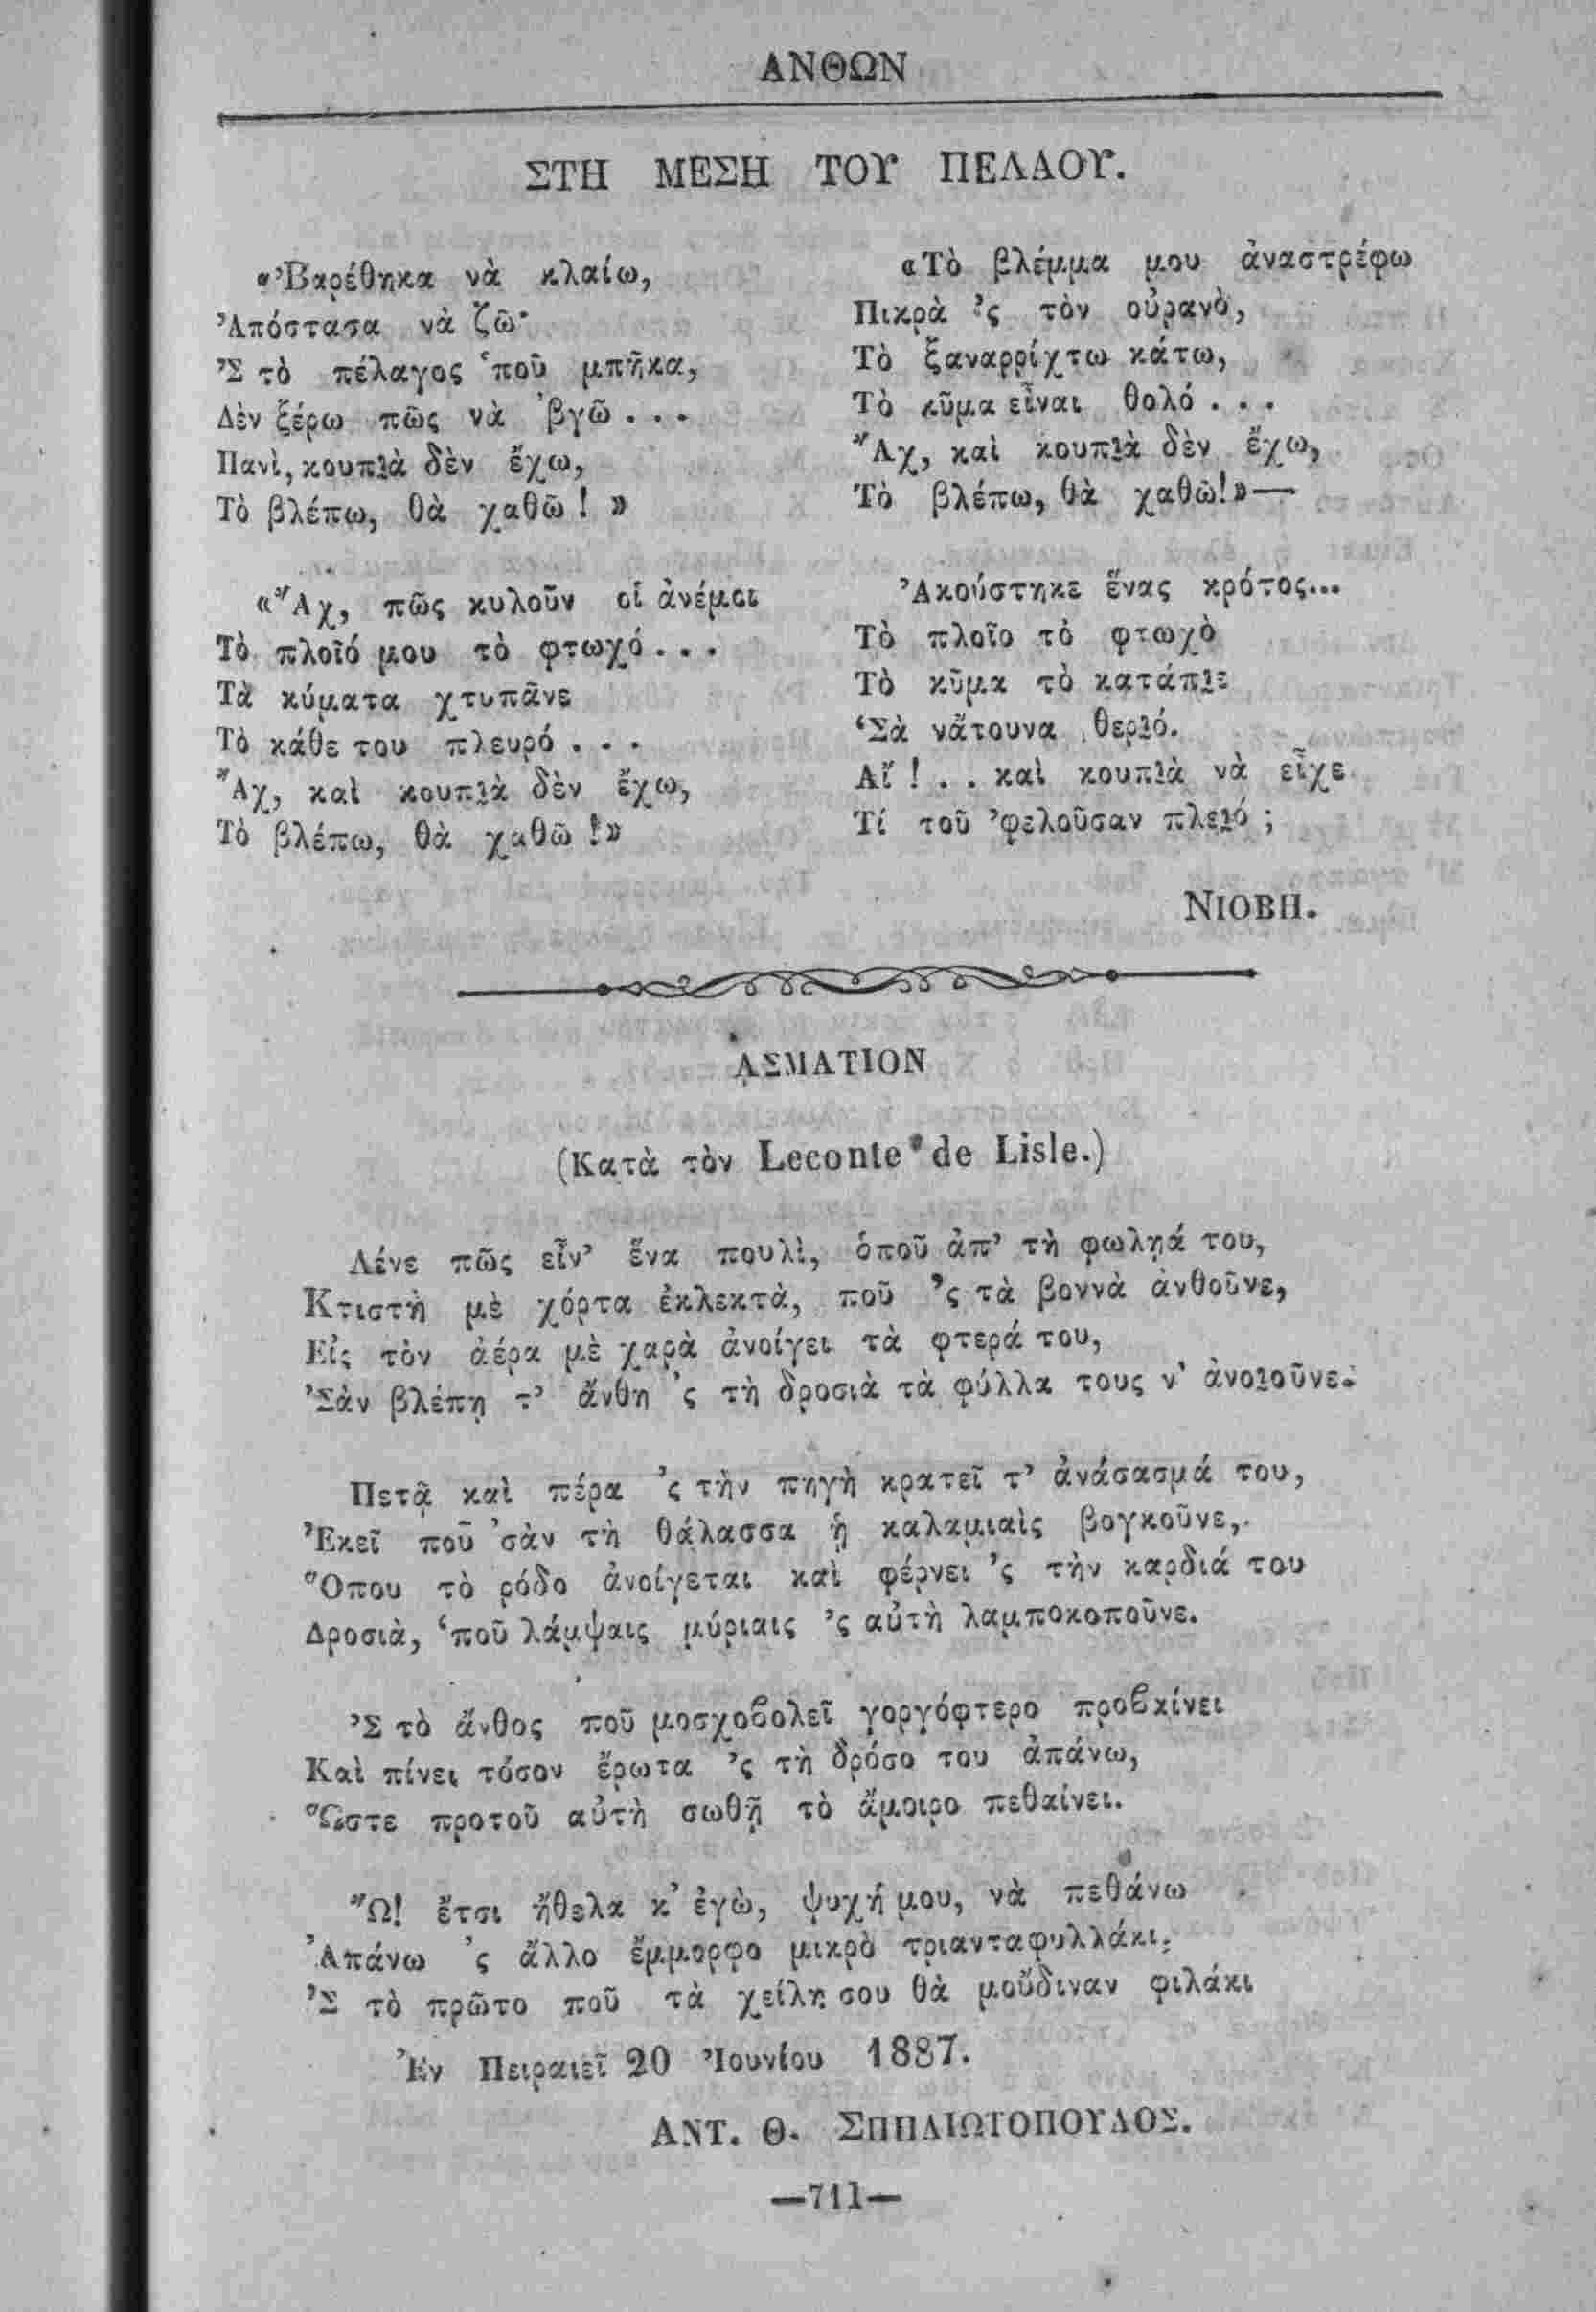 ΑΝΘΩΝ
ΣΤΗ ΜΕΣΗ ΤΟΥ ΠΕΛΑΟΥ.
«Ἐβαρέθηκα νὰ κλαίω,
Ἀπόστασα νὰ ζῶ·
Ἐς τὸ πέλαγος ‘ποῦ μπῆκα,
Δὲν ξέρω πῶς νὰ ’βγῶ . . .
Πανὶ, κουπιὰ δὲν ἔχω,
Τὸ βλέπω, θὰ χαθῶ ! »
«Ἄχ, πῶς κυλοῦν οἱ ἀνέμοι
Τὸ πλοῖό μου τὸ φτωχό . . .
Τὰ κύματα χτυπᾶνε
Τὸ κάθε του πλευρό . . .
Ἄχ, καὶ κουπιὰ δὲν ἔχω,
Τὸ βλέπω, θὰ χαθῶ !»
«Τὸ βλέμμα μου ἀναστρέφω
Πικρὰ ’ς τὸν οὐρανὸ,
Τὸ ξαναρρίχτω κάτω,
Τὸ κῦμα εἶναι θολό . . .
Ἄχ, καὶ κουπιὰ δὲν ἔχω,
Τὸ βλέπω, θὰ χαθῶ!»—
Ἀκούστηκε ἕνας κρότος...
Τὸ πλοῖο τὸ φτωχὸ
Τὸ κῦμα τὸ κατάπιε
‘Σὰ νἄτουνα θεριό.
Αἴ ! . . καὶ κουπιὰ νὰ εἶχε
Τί τοῦ ’φελοῦσαν πλειό ;
ΝΙΟΒΗ.
ᾈΣΜΑΤΙΟΝ
(Κατὰ τὸν Leconte de Lisle.)
Λένε πῶς εἶν’ ἕνα πουλὶ, ὁποῦ ἀπ’ τὴ φωληά του,
Κτιστὴ μὲ χόρτα ἐκλεκτὰ, ποῦ ’ς τὰ βοννὰ ἀνθοῦνε,
Εἰς τὸν ἀέρα μὲ χαρὰ ἀνοίγει τὰ φτερά του,
’Σὰν βλέπῃ τ’ ἄνθη ’ς τὴ δροσιὰ τὰ φύλλα τους ν’ ἀνοιοῦνε.
Πετᾷ καὶ πέρα ’ς τὴν πηγὴ κρατεῖ τ’ ἀνάσασμά του,
Ἐκεῖ ποῦ ’σὰν τὴ θάλασσα ᾑ καλαμιαὶς βογκοῦνε,
Ὅπου τὸ ρόδο ἀνοίγεται καὶ φέρνει ’ς τὴν καρδιά του
Δροσιὰ, ‘ποῦ λάμψαις μύριαις ’ς αὐτὴ λαμποκοποῦνε.
’Σ τὸ ἄνθος ποῦ μοσχοβολεῖ γοργόφτερο προβαίνει
Καὶ πίνει τόσον ἔρωτα ’ς τὴ δρόσο του ἀπάνω,
Ὥστε προτοῦ αὐτὴ σωθῇ τὸ ἄμοιρο πεθαίνει.
Ὤ! ἔτσι ἤθελα κ’ ἐγὼ, ψυχή μου, νὰ πεθάνω
Ἀπάνω ’ς ἄλλο ἔμμορφο μικρὸ τριανταφυλλάκι,
’Σ τὸ πρῶτο ποῦ τὰ χείλη σου θὰ μοὔδιναν φιλάκι
Ἐν Πειραιεῖ 20 Ἰουνίου 1887.
ΑΝΤ. Θ. ΣΠΗΛΙΩΤΟΠΟΥΛΟΣ.
—711—